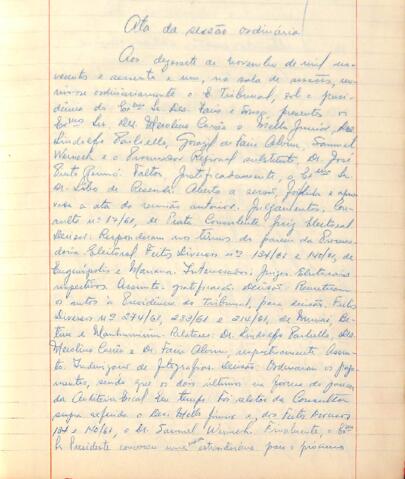 Ata da sessão ordinária
Aos dezessete de novembro de mil no-
vecentos e sessenta e um, na sala de sessões, reu-
niu-se ordinariamente o E. Tribunal, sob a presi-
dência do Exmo Sr. Des. Faria e Souza, presentes os
Exmos Srs. Des. Merolino Corrêa e Mello Junior, Drs.
Lindolfo Paoliello, Gonzaga Faria Alvim, Samuel
Werneck e o Procurador Regional substituto, Dr. José
Faltou, justificadamente, o Exmo Sr.
Dr. Lobo de Resende. Aberta a sessão, foi lida e apro-
vada a ata da reunião anterior. Julgamentos. Con-
sulta nº 17/61, de Prata. Consulente Juiz Eleitoral
Decisão: Responderam nos termos do parecer da Procura-
doria Eleitoral. Feitos Diversos nºs 134/61 e 140/61, de
Eugenópolis e Mariana. Interessados: Juízes Eleitorais
respectivos. Assunto: gratificação. Decisão: Remeteram
os autos à Presidência do Tribunal, para decisão. Feitos
Diversos nºs 274/61, 233/61 e 214/61, de Muriaé, Be-
tim e Manhumirim. Relatores: Dr. Lindolfo Paoliello, Des.
Merolino Corrêa e Dr. Faria Alvim, respectivamente. Assun-
to: Indenizações de fotógrafos. Decisão: Ordenaram os paga-
mentos, sendo que os dois últimos na forma do parecer
da Auditoria Fiscal. Em tempo: Foi relator da Consulta
supra referida o Des. Mello Junior e, dos Feitos Diversos
134 e 140/61, o Dr. Samuel Werneck. Finalmente, o Exmo
Sr. Presidente convocou uma extraordinária para o próximo